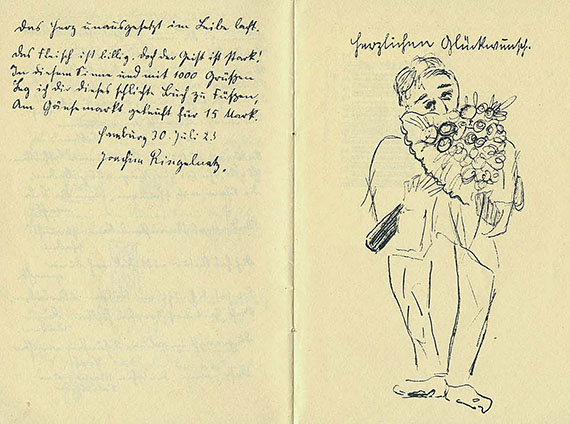 das Herz unausgesetzt im Leibe lacht.
Das Fleisch ist billig. Doch der Geist ist stark!
In diesem Sinne und mit 1000 Grüßen
Leg ich dir dieses schlichte Buch zu Füßen,
Am Gänsemarkt gekauft für 15 Mark.
Hamburg 30. Juli 23
Joachim Ringelnatz.
Herzlichen Glückwunsch.